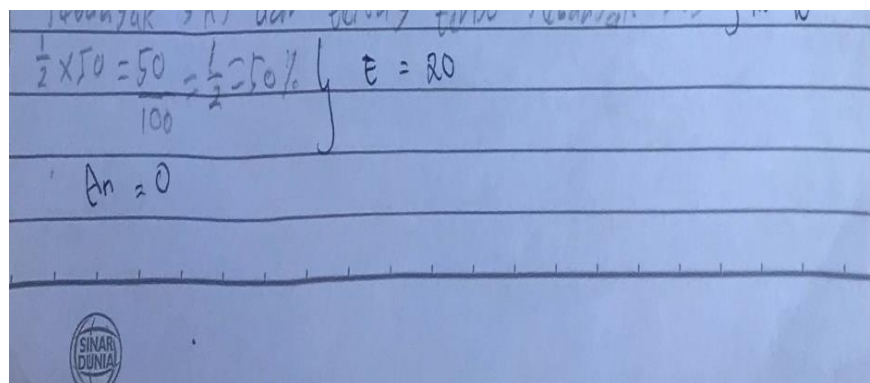 1/2 × 50 = 50/100 = 1/2 = 50% } E = 20
An = 0
SINAR
DUNIA